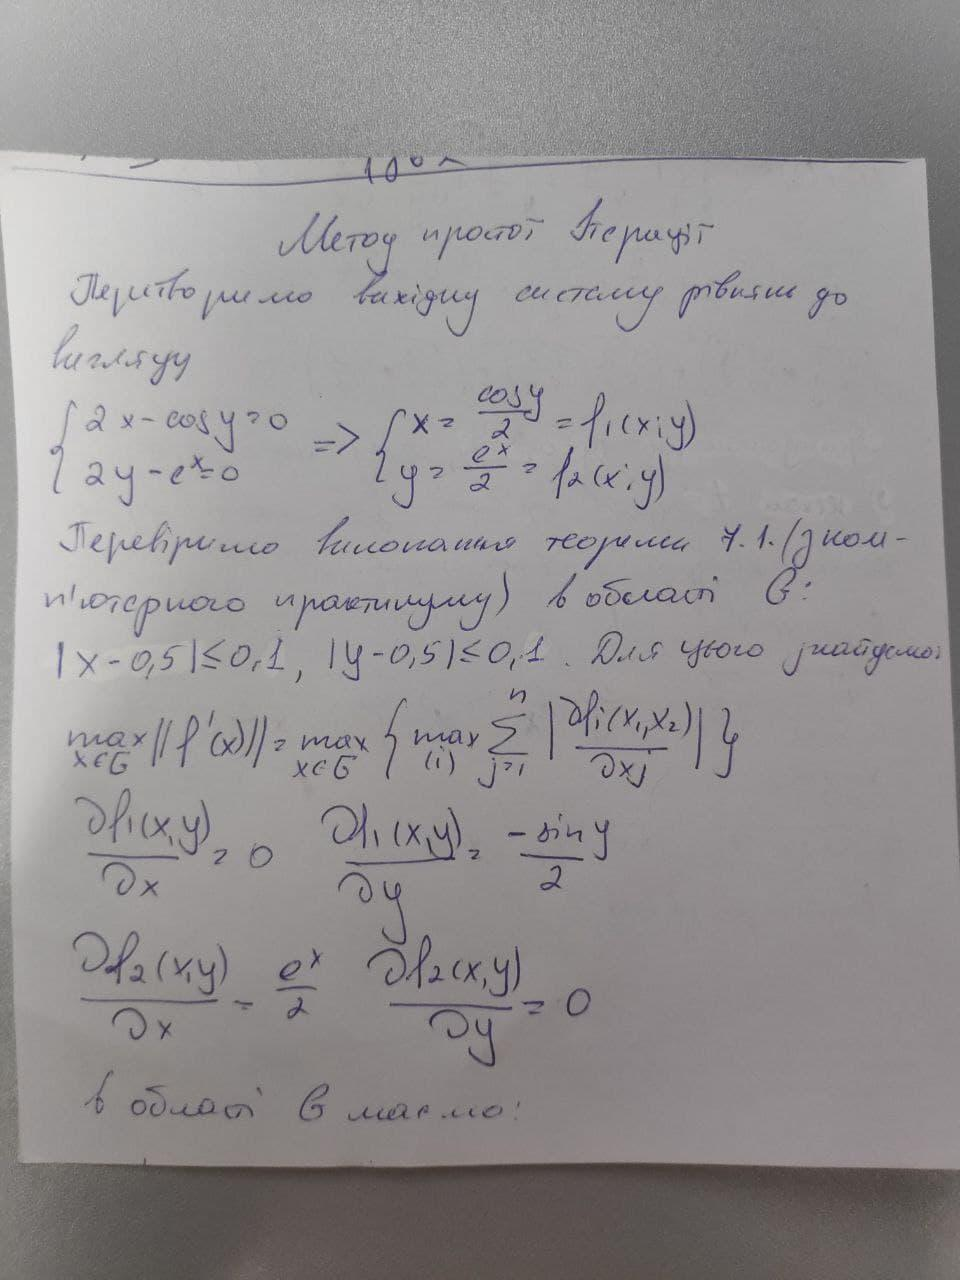 Метод простої Ітерації
Перетворимо вихідну систему рівнянь до
вигляду
{ 2x - cos y = 0 => { x = cos y / 2 = f₁(x; y)
{ 2y - eˣ = 0 { y = eˣ / 2 = f₂(x; y)
Перевіримо виконання теореми 7.1. (з ком-
п'ютерного практикуму) в області G:
|x - 0,5| ≤ 0,1, |y - 0,5| ≤ 0,1. Для цього знайдемо:
max x∈G ||f'(x)|| = max x∈G { max (i) Σ j=1 n |∂fi(x₁, x₂) / ∂xj| }
∂f₁(x,y) / ∂x = 0 ∂f₁(x,y) / ∂y = -sin y / 2
∂f₂(x,y) / ∂x = eˣ / 2 ∂f₂(x,y) / ∂y = 0
в області G маємо: